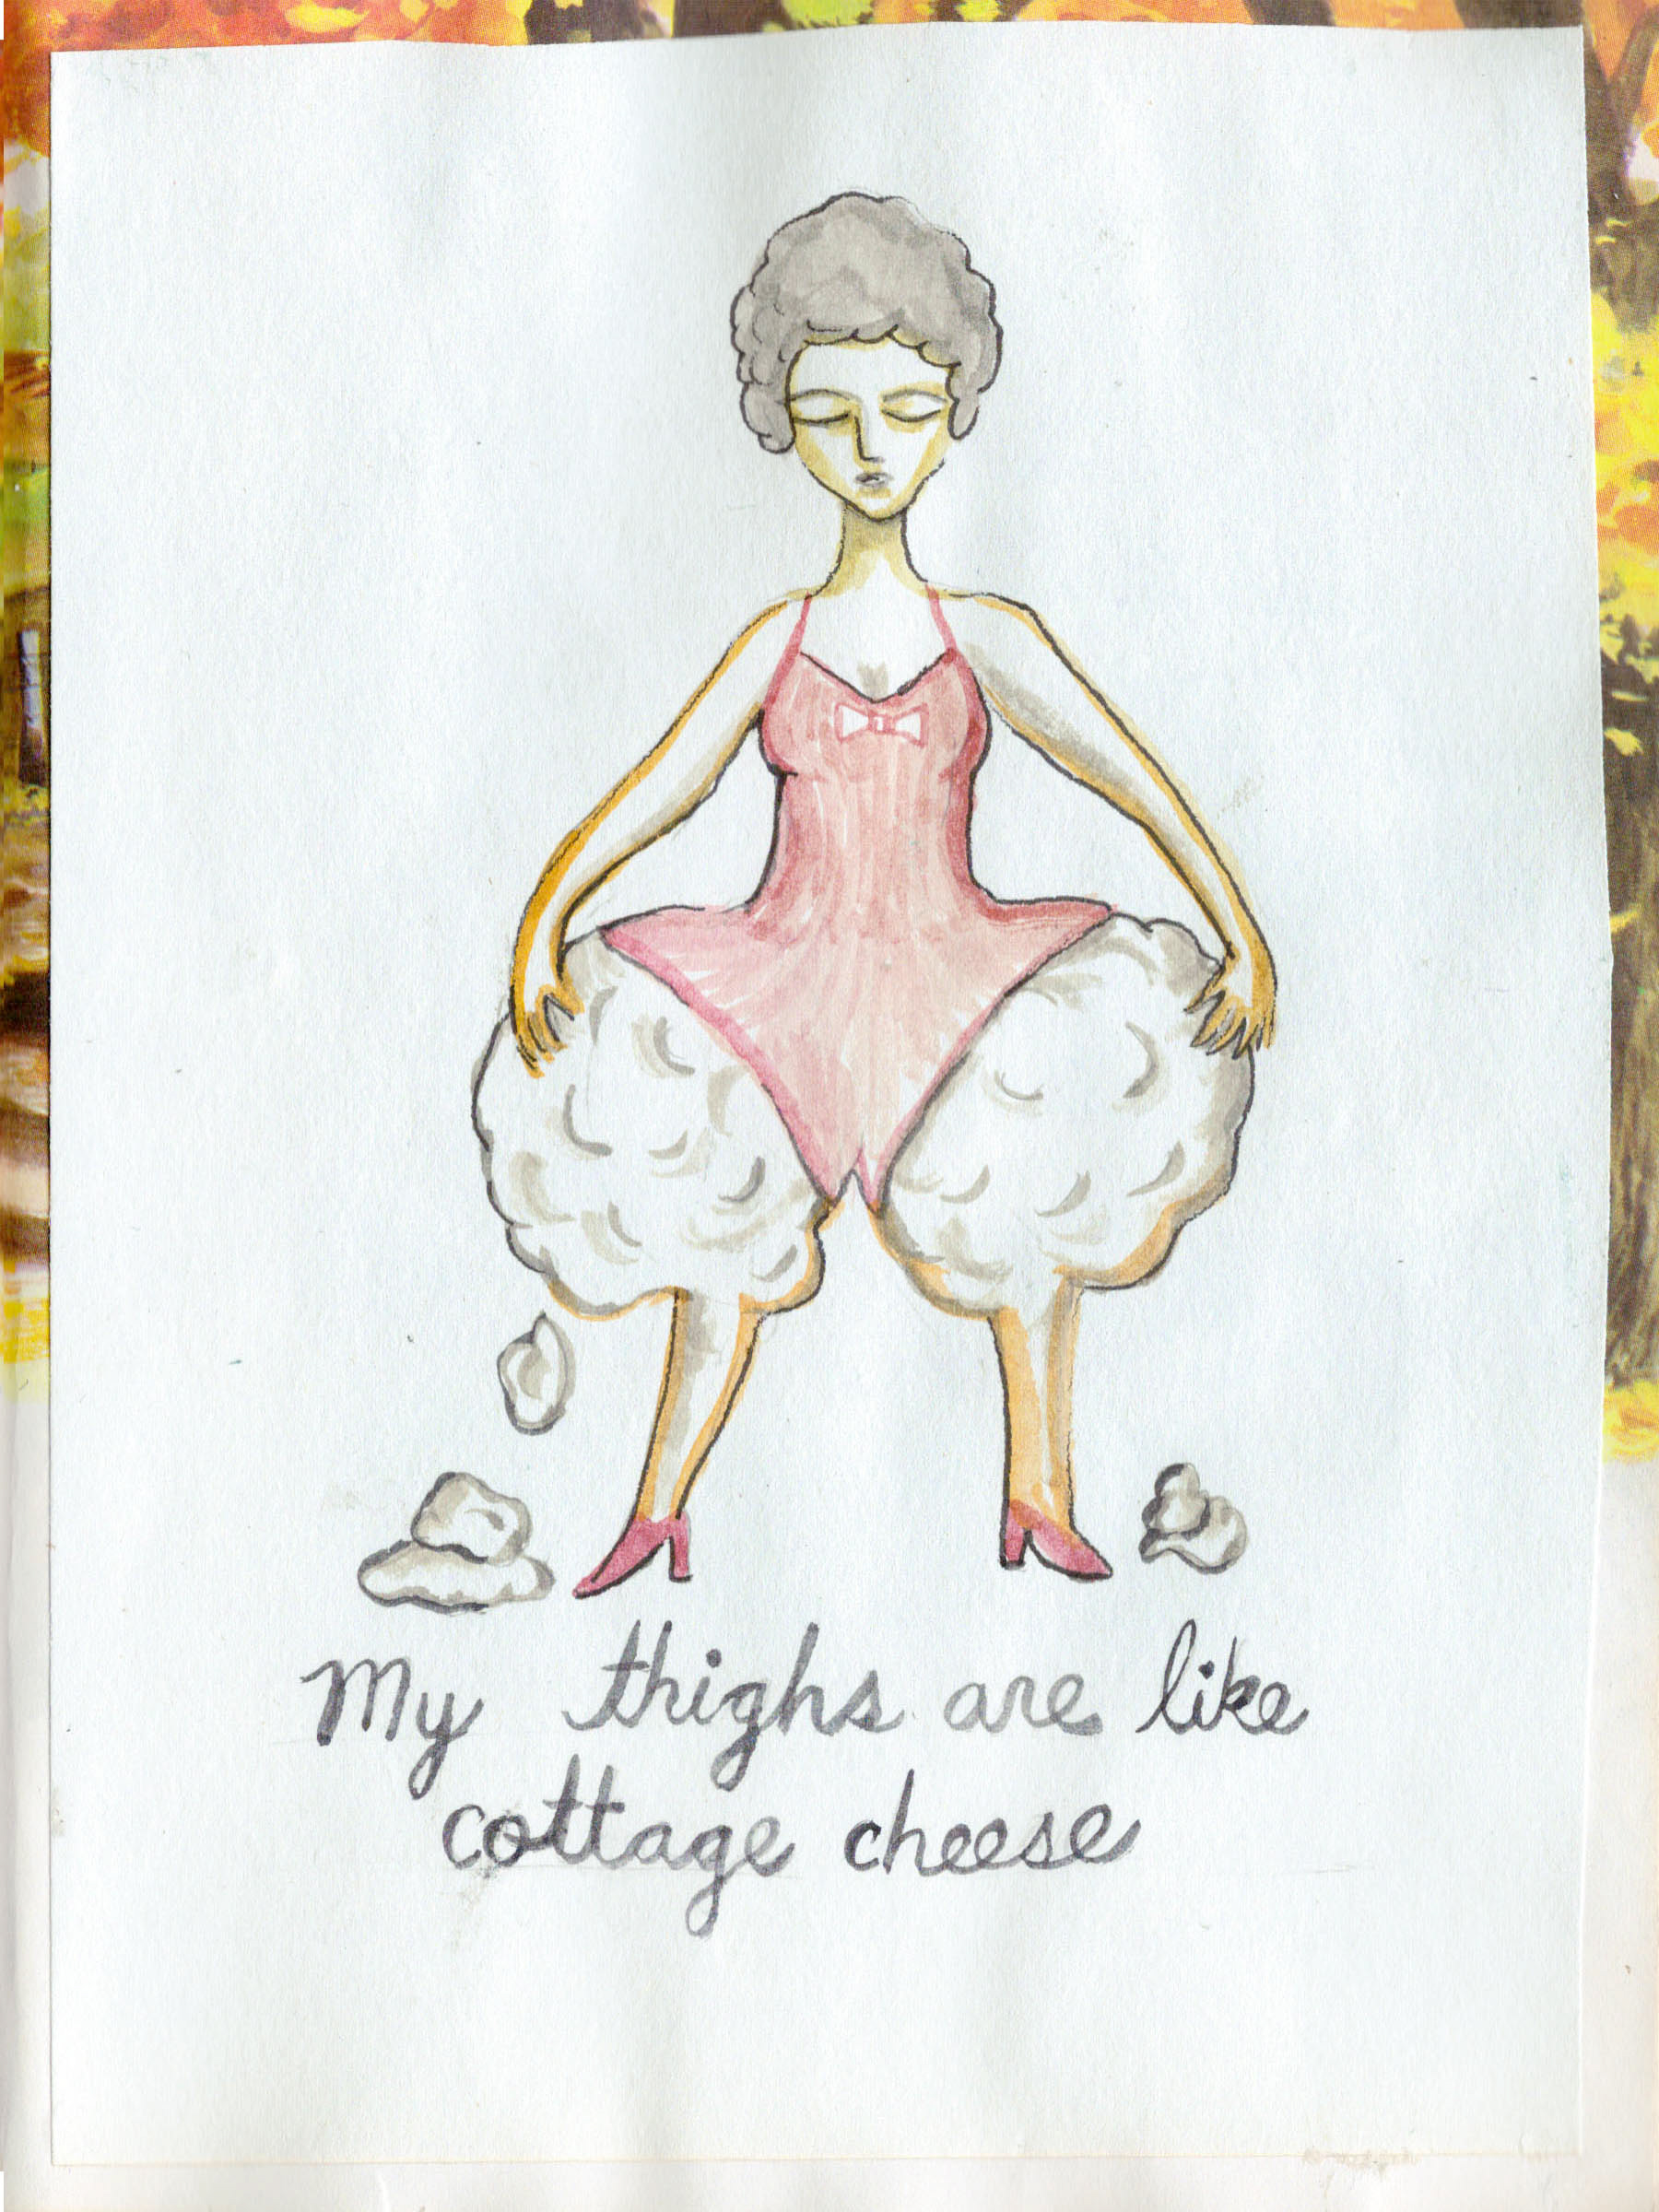 My thighs are like
cottage cheese